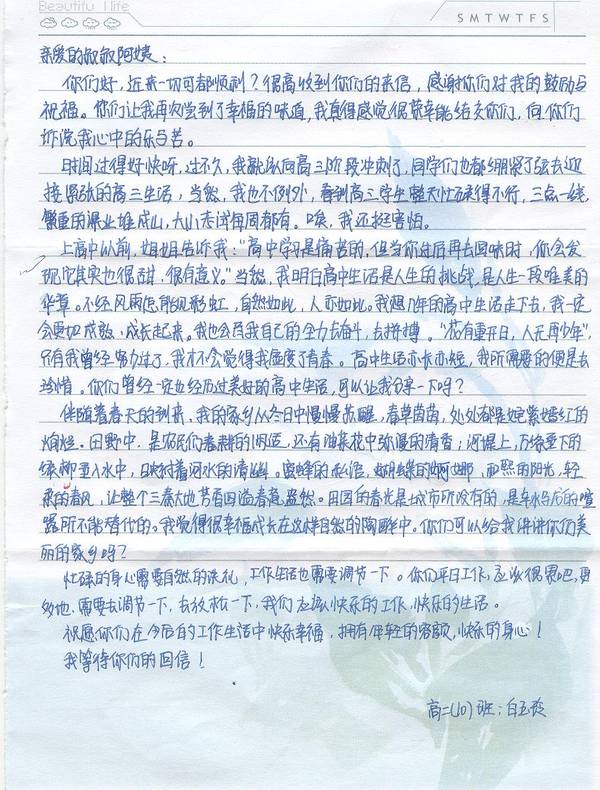 Beautiful life
S M T W T F S
亲爱的叔叔阿姨：
你们好，近来一切可都顺利？很高收到你们的来信，感谢你们对我的鼓励与
祝福。你们让我再次尝到了幸福的味道，我真得感觉很荣幸能结交你们，向你们
诉说我心中的乐与苦。
时间过得好快呀，过不久，我就纵向高三阶段冲刺了，同学们也都绷紧了弦去迎
接紧张的高三生活，当然，我也不例外，看到高三学生整天忙碌得不行，三点一线，
繁重的课业堆成山，大小考试每周都有。唉，我还挺害怕。
上高中以前，姐姐告诉我："高中学习是痛苦的，但当你过后再去回味时，你会发
现它其实也很甜，很有意义。"当然，我明白高中生活是人生的挑战，是人生一段唯美的
华章。不经风雨怎能见彩虹，自然如此，人亦如此。我想几年的高中生活走下去，我一定
会更加成熟，成长起来。我也会尽我自己的全力去奋斗，去拼搏。"花有重开日，人无再少年"，
只有我曾经努力过了，我才不会觉得我虚度了青春。高中生活亦长亦短，我所需要的便是去
珍惜。你们曾经一定也经历过美好的高中生活，可以让我分享一下吗？
伴随着春天的到来，我的家乡从冬日中慢慢苏醒，春草茵茵，处处都是姹紫嫣红的
灿烂。田野中，是农民们春耕的的困，还有油菜花中弥漫的清香；河堤上，万绦垂下的
绿柳垂入水中，映衬着河水的清幽。蜜蜂的私语，蝴蝶的婀娜，和熙的阳光，轻
柔的春风，让整个三秦大地芳香四溢春意盎然。田园的春光是城市所没有的，是车水马龙的喧
嚣所不能替代的。我觉得很幸福成长在这样自然的陶醉中。你们可以给我讲讲你们美
丽的家乡吗？
忙碌的身心需要自然的洗礼，工作生活也需要调节一下。你们平日工作，应该很累吧，更
多地，需要去调节一下，去放松一下，我们应该快乐的工作，快乐的生活。
祝愿你们在今后的工作生活中快乐幸福，拥有年轻的容颜，快乐的身心！
我等待你们的回信！
高二(10)班：白玉